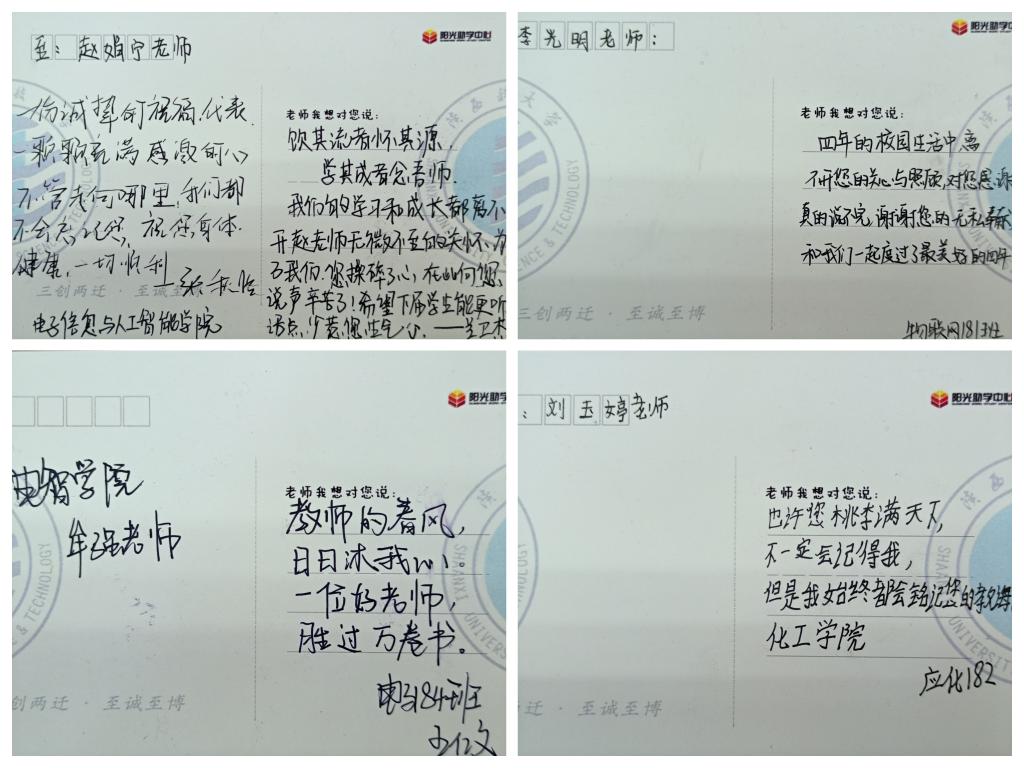 至：赵娟宁老师
阳光助学中心
一份诚挚的祝福,代表
一颗颗充满感激的心
不管走向哪里,我们都
不会忘记您,祝您身体
健康,一切顺利
三创两迁 · 至诚至博
电子信息与人工智能学院
老师我想对您说：
饮其流者怀其源,
学其成者念吾师.
我们的学习和成长都离不
开赵老师无微不至的关怀,为
了我们,您操碎了心,在此向您
说声辛苦了!希望下届学生能更听
话点,少惹您生气
李光明老师：
阳光助学中心
老师我想对您说：
四年的校园生活中离
不开您的关心与照顾,对您感谢
真的说不完,谢谢您的无私奉献
和我们一起度过了最美好的四年
物联网181班
三创两迁 · 至诚至博
阳光助学中心
电智学院
牟强老师
老师我想对您说：
教师的春风,
日日沐我心。
一位好老师,
胜过万卷书。
电子184班
王仁文
创两迁 · 至诚至博
：刘玉婷老师
阳光助学中心
老师我想对您说：
也许您桃李满天下,
不一定会记得我,
但是我始终都会铭记您的教诲
化工学院
应化182
迁 · 至诚至博